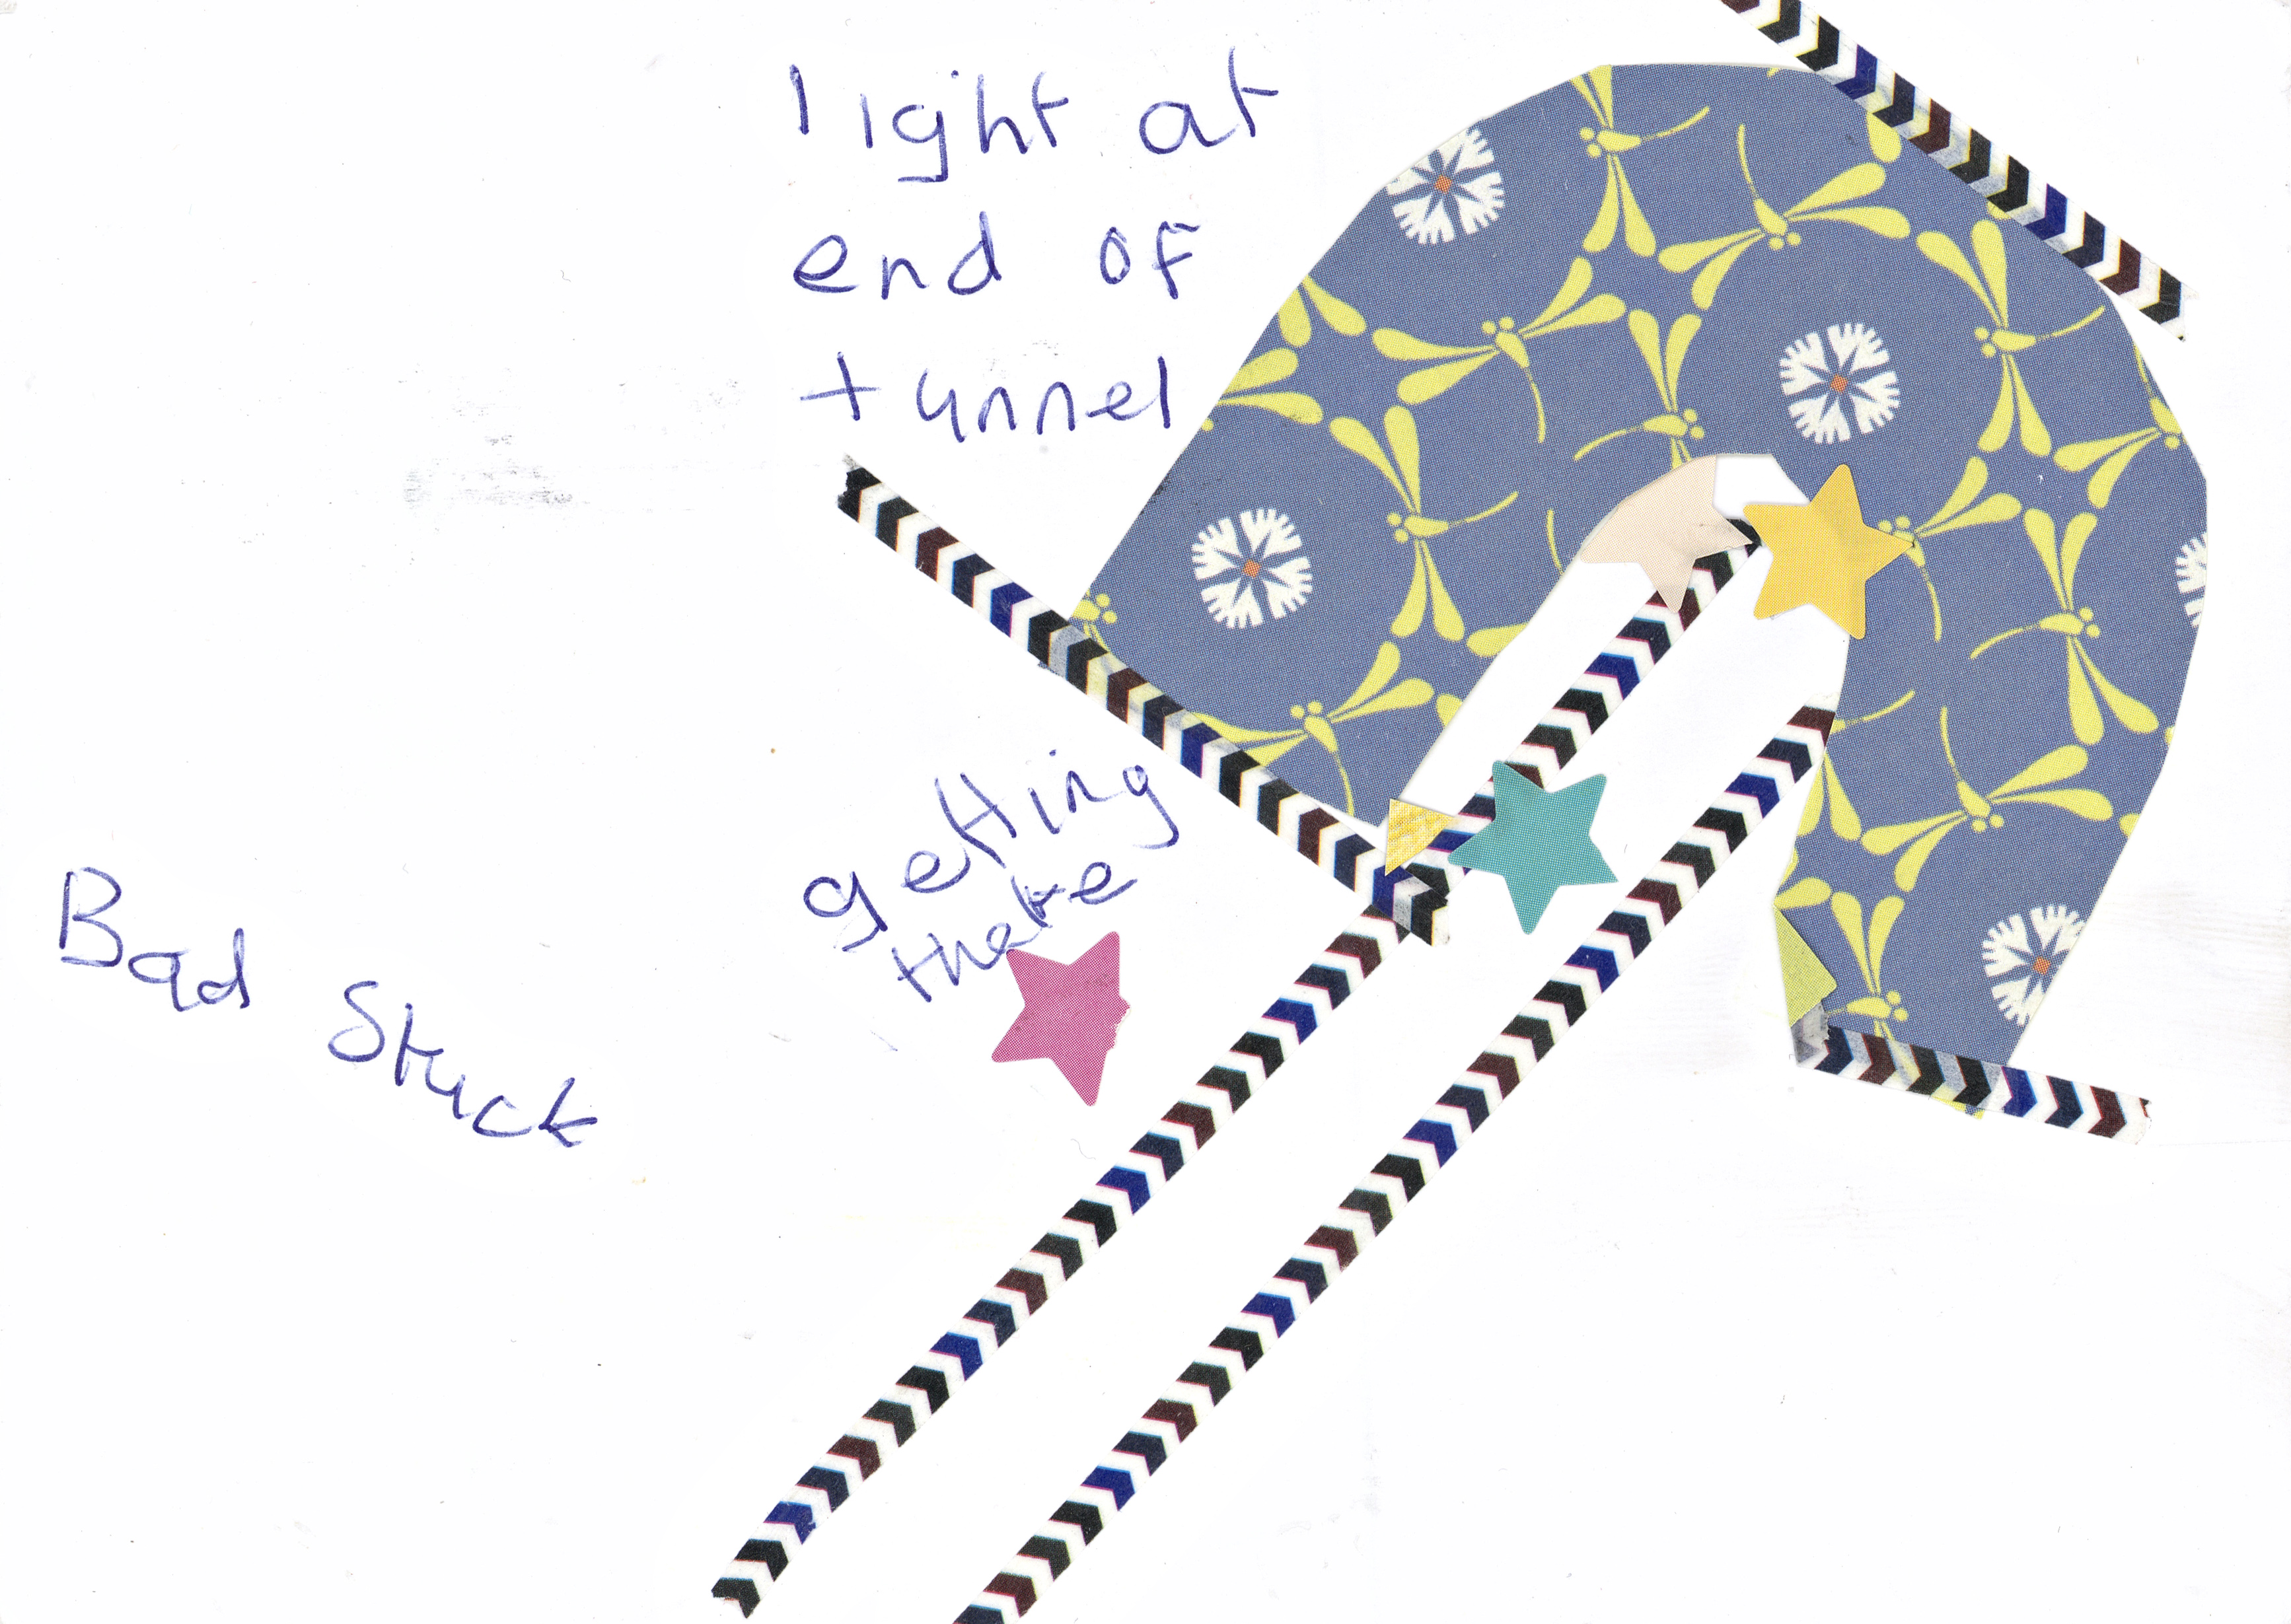 light at
end of
tunnel
getting
there
Bad Stuck